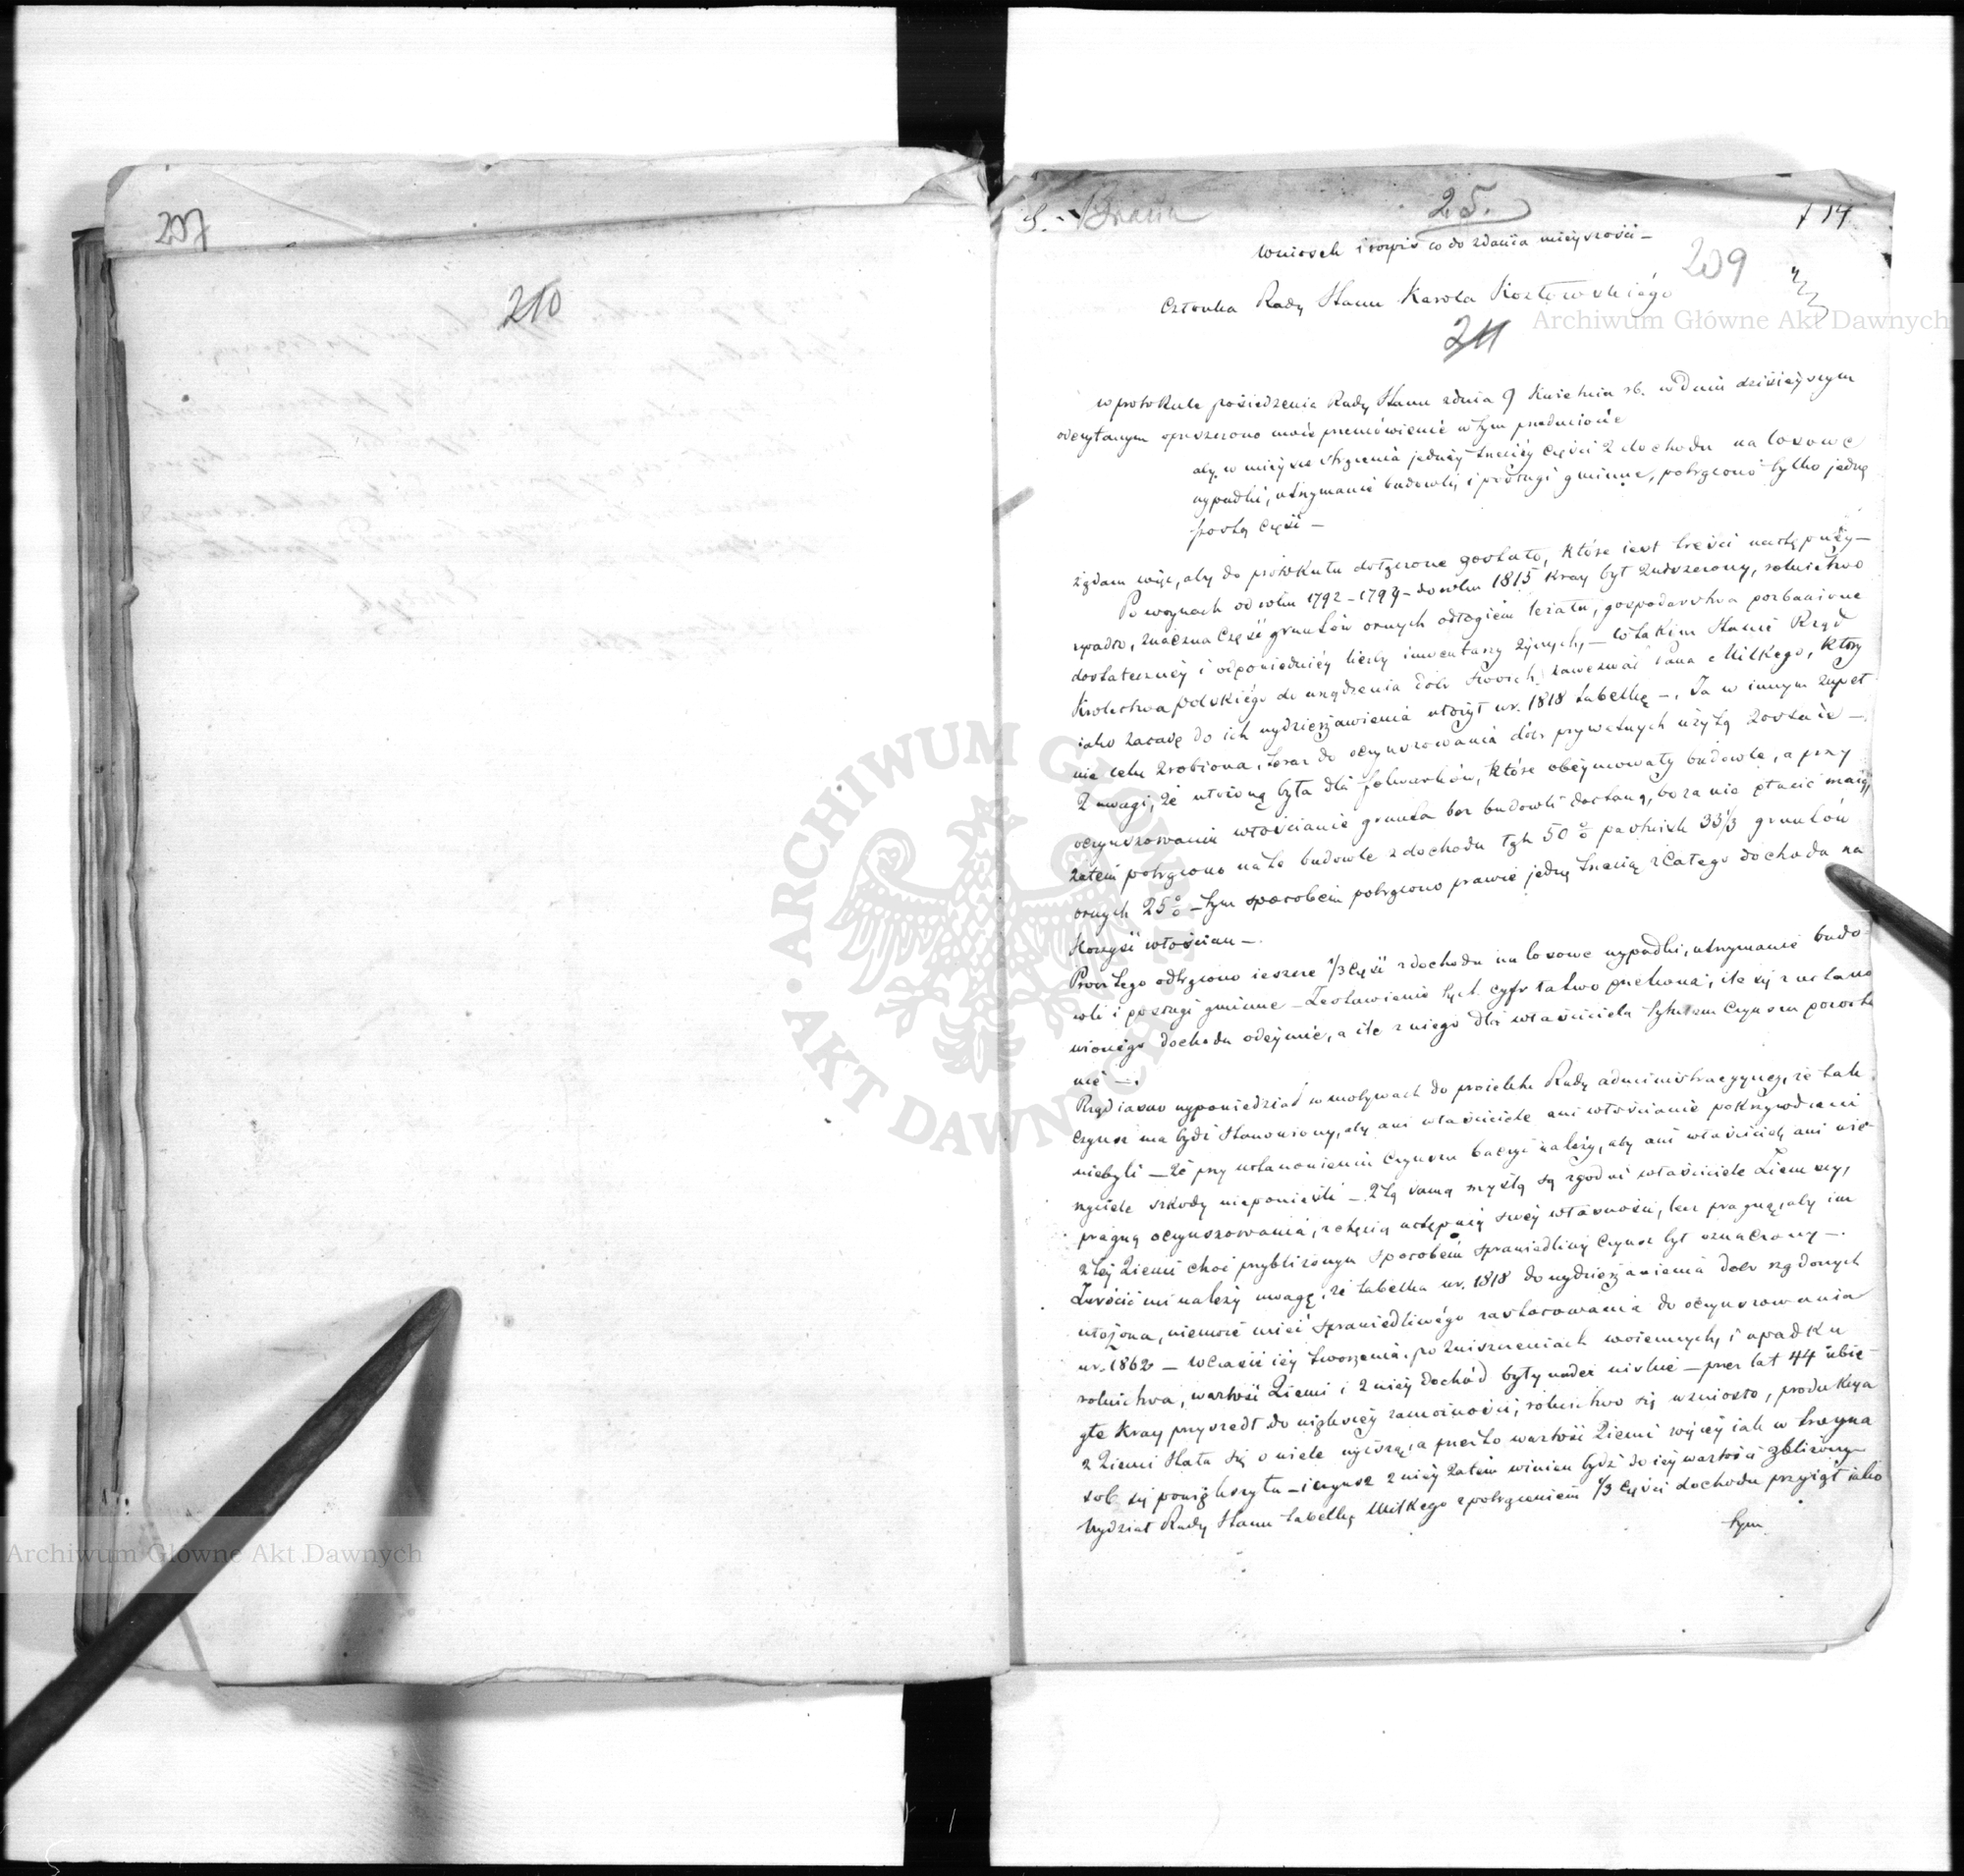 207
210
S. Braun
25.
114
Wniosek i wopis co do zdania mieyszości —
209
Członka Rady Stanu Karola Kozłowskiégo
211
w protokule posiedzenia Rady Stanu z dnia 9 Kwietnia rb. w Dniu dzisieyszym
odczytanym opuszczono moie przemówienié w tym przedmiocie
aby w mieysce strącenia jednéy trzeciéy Części z dochodu na losowe
wypadki, utrzymanié budowli i posługi gminne, potrącono tylko jedną
szóstą Część —
żądam więc, aby do protokułu dołączone zostało, które iest treści następuiéy —
Po woynach od roku 1792 – 1794 – do roku 1815 kray był zniszczony, rolnictwo
upadło, znaczna Część gruntów ornych odłogiem leżała, gospodarstwa pozbawione
dostatecznéy i odpowiedniéy liczby inwentarzy żywych, — W takim Stanie Rząd
Królestwa Polskiégo do urządzenia Dóbr swoich zawezwał Pana Milkego, który
iako zasadę do ich wydzierżawienia ułożył w r. 1818 tabellę —. Ta w innym zupeł
nie celu zrobiona, teraz do oczynszowania dóbr prywatnych użytą została —.
Z uwagi, że utworzoną była dla folwarków, które obéymowały budowle, a przy
oczynszowaniu włościanie grunta bez budowli dostaną, bo za nie płacić maią,
zatém potrącono na te budowle z dochodu łąk 50 % pastwisk 33⅓ gruntów
ornych 25 % — tym sposobem potrącono prawie jedną trzecią z Całego dochodu na
Korzyść włościan —.
Prócz tego odtrącono ieszcze ⅓ Część z dochodu na losowe wypadki, utrzymanié budo=
wli i posługi gminne — Zestawienié tych cyfr łatwo przekona, ile się z ustano
wionégo dochodu odéymie, a ile z niégo dla właściciela tytułem Czynszu pozosta
nié —.
Rząd iasno wypowiedział w motywach do proiektu Rady administracyynéy, że tak
Czynsz ma bydź stanowiony, aby ani właściciele ani włościanie pokrzywdzeni
niebyli — że przy ustanowieniu Czynszu baczyć należy, aby ani właściciele ani wie=
rzyciele szkody nieponieśli — Z tą samą myślą są zgodni właściciele Ziemscy,
pragną oczynszowania, z chęcią ustępuią swéy własności, lecz pragną, aby im
z téy Ziemi choć przybliżonym sposobem sprawiedliwy Czynsz był oznaczony —.
Zwrócić mi należy uwagę, że tabella w r. 1818 do wydzierżawienia Dóbr rządowych
ułożona, niemoże mieć sprawiedliwégo zastosowania do oczynszowania
w r. 1862 — W czasie iéy tworzenia, po zniszczeniach woiennych, i upadku
rolnictwa, wartość Ziemi i z niéy dochód były nader niskie — przez lat 44 ubie=
głe kray przyszedł do większéy zamożności, rolnictwo się wzniosło, produkcya
z Ziemi stała się o wiele wyższą, a przeto wartość Ziemi więcéy iak w trzyna
sób się powiększyła — i czynsz z niéy zatém winien bydź do iéy wartości zbliżony —
Wydział Rady Stanu tabellę Milkego z potrąceniem ⅓ Części dochodu przyiął iako
tym
Archiwum Główne Akt Dawnych
Archiwum Główne Akt Dawnych
ARCHIWUM GŁÓWNE AKT DAWNYCH